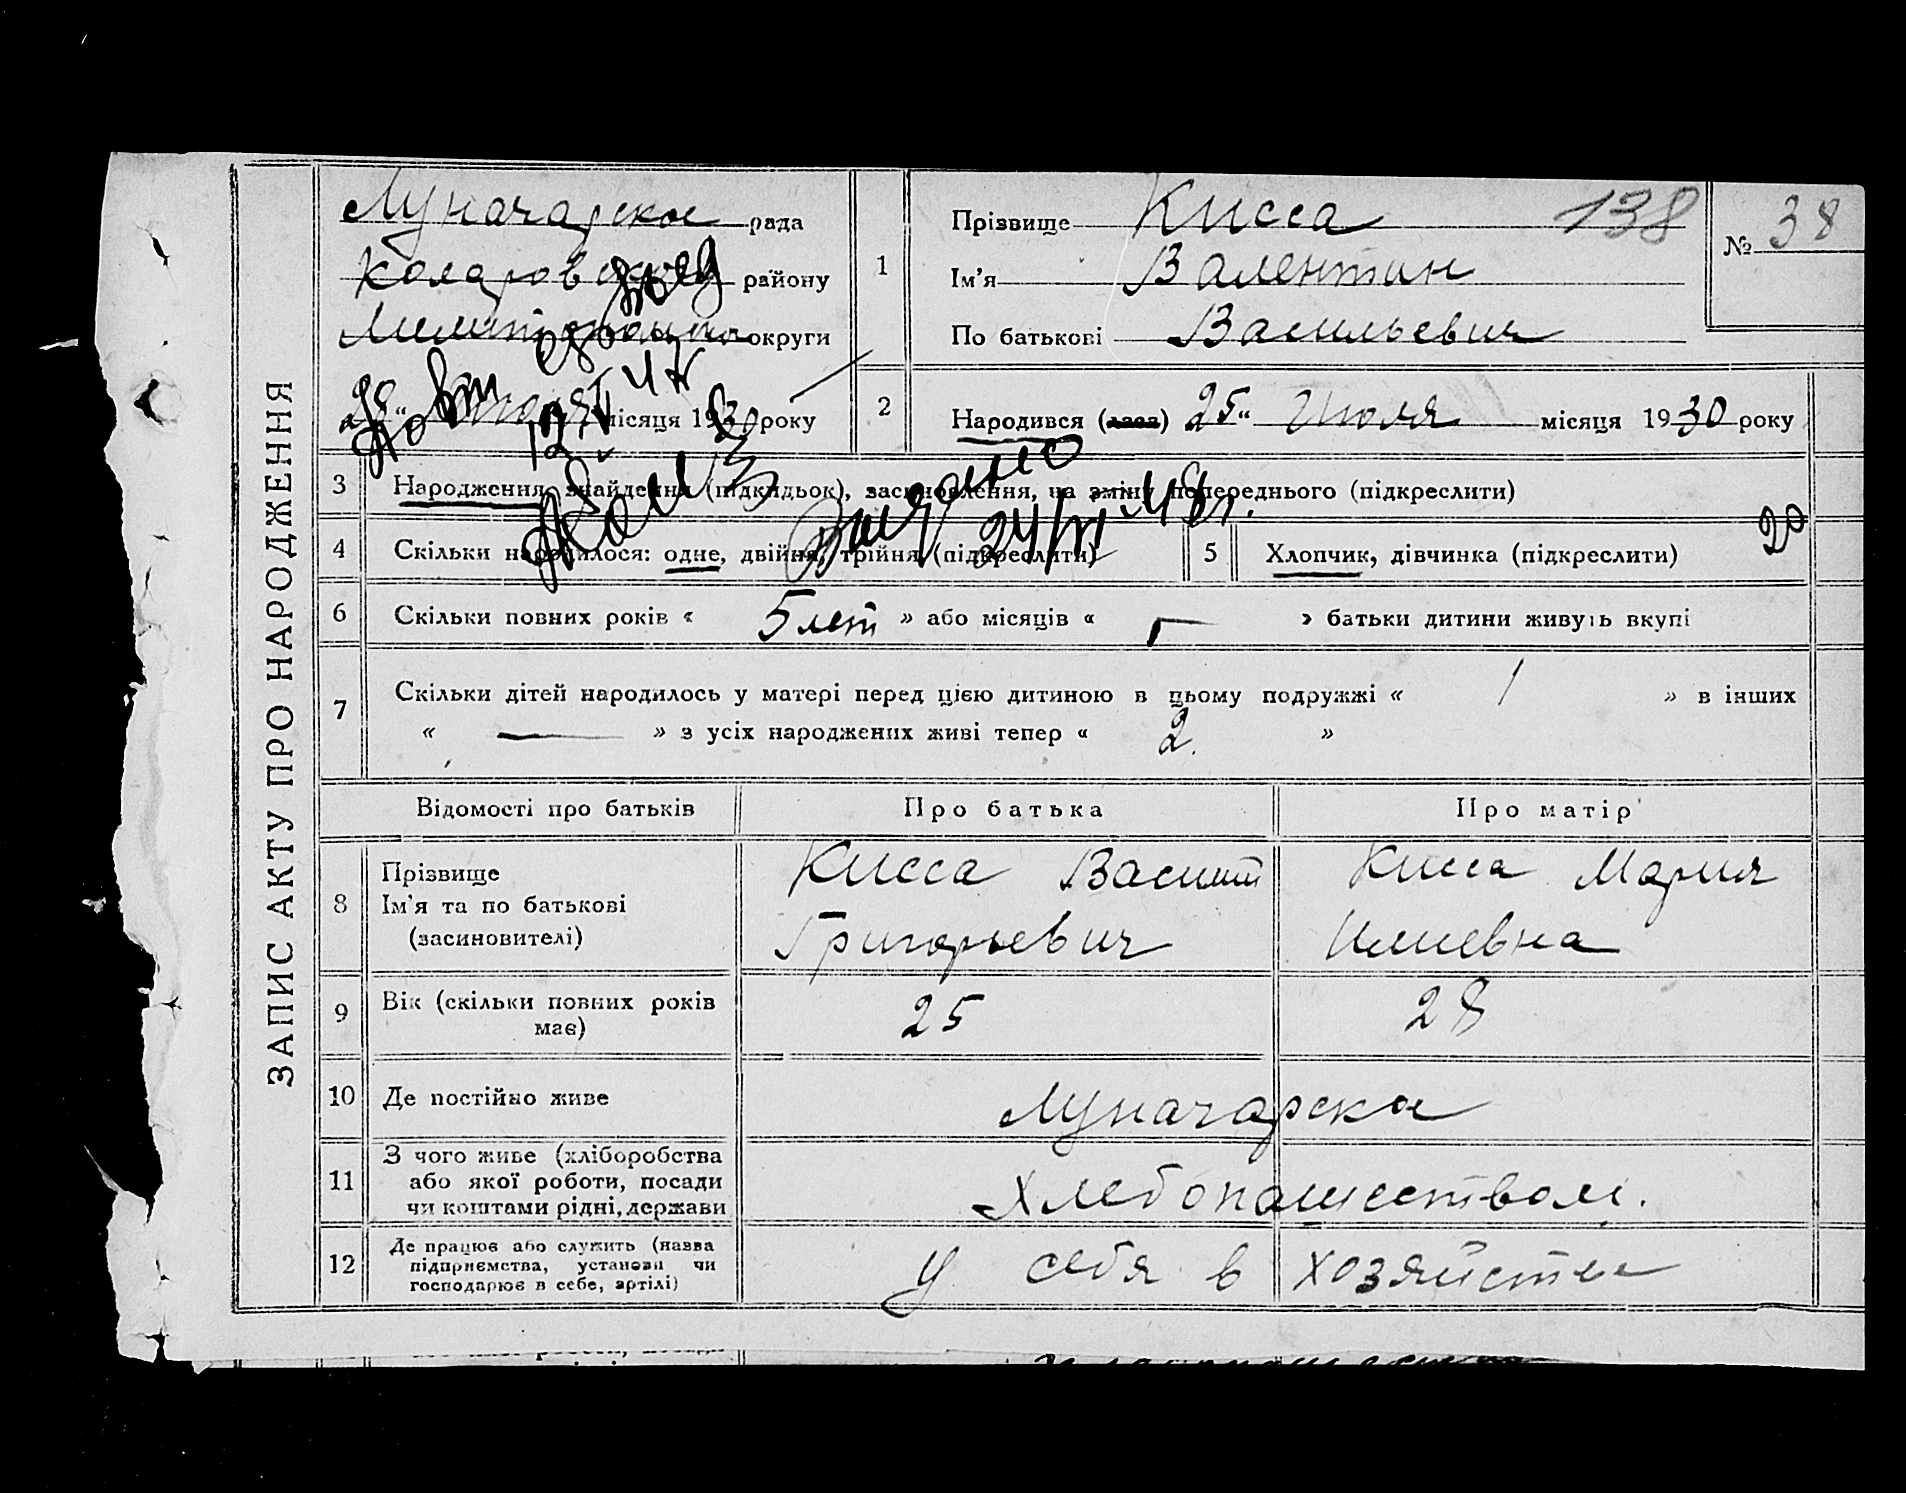 ЗАПИС АКТУ ПРО НАРОДЖЕННЯ
Луначарское рада
Коларовского району
Мелитопольской округи
28 “ Июля місяця 1930 року
1
Прізвище Кисса 138
Ім'я Валентин
По батькові Васильевич
№ 38
2
Народився (лася) 25 “ Июля місяця 1930 року
3 Народження, знайдення (підкидьок), засиновлення, на зміну попереднього (підкреслити)
24/III 48г.
4 Скільки народилося: одне, двійня, трійня (підкреслити) 5 Хлопчик, дівчинка (підкреслити) 20
6 Скільки повних років « 5 лет » або місяців « — » батьки дитини живуть вкупі
7 Скільки дітей народилось у матері перед цією дитиною в цьому подружжі « 1 » в інших
« — » з усіх народжених живі тепер « 2 »
Відомості про батьків Про батька Про матір
8 Прізвище
Ім'я та по батькові
(засиновителі)
Кисса Василий
Григорьевич
Кисса Мария
Илиевна
9 Вік (скільки повних років
має)
25 28
10 Де постійно живе Луначарское
11 З чого живе (хліборобства
або якої роботи, посади
чи коштами рідні, держави
Хлебопашеством.
12 Де працює або служить (назва
підприємства, установи чи
господарює в себе, артілі)
у себя в хозяйстве